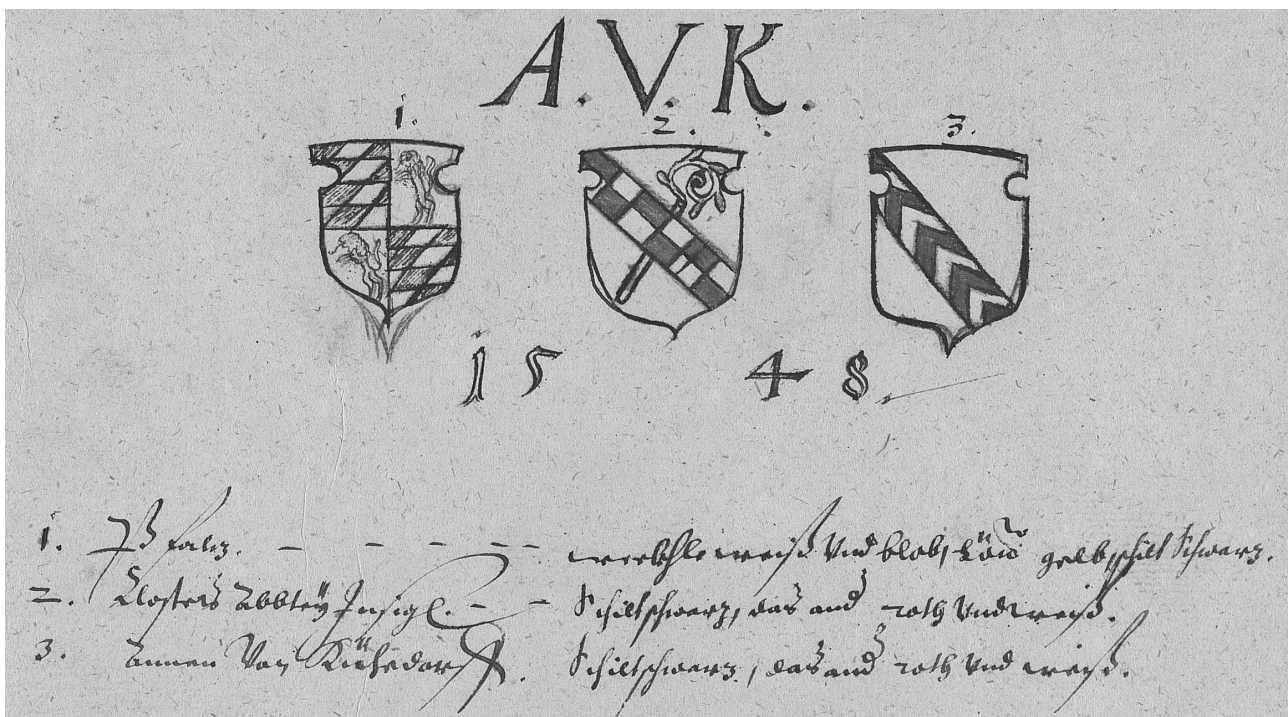 A. V. K.
1. 2. 3.
15 48.
1. Pfalz. – – – – – weiß Vnd blob, Löw gelb, schilt Schwarz.
2. Closters Abbtey Insigl. – – Schilt schwarz, das and roth Vnd weiß.
3. Annen Von Schilt schwarz, das and roth Vnd weiß.